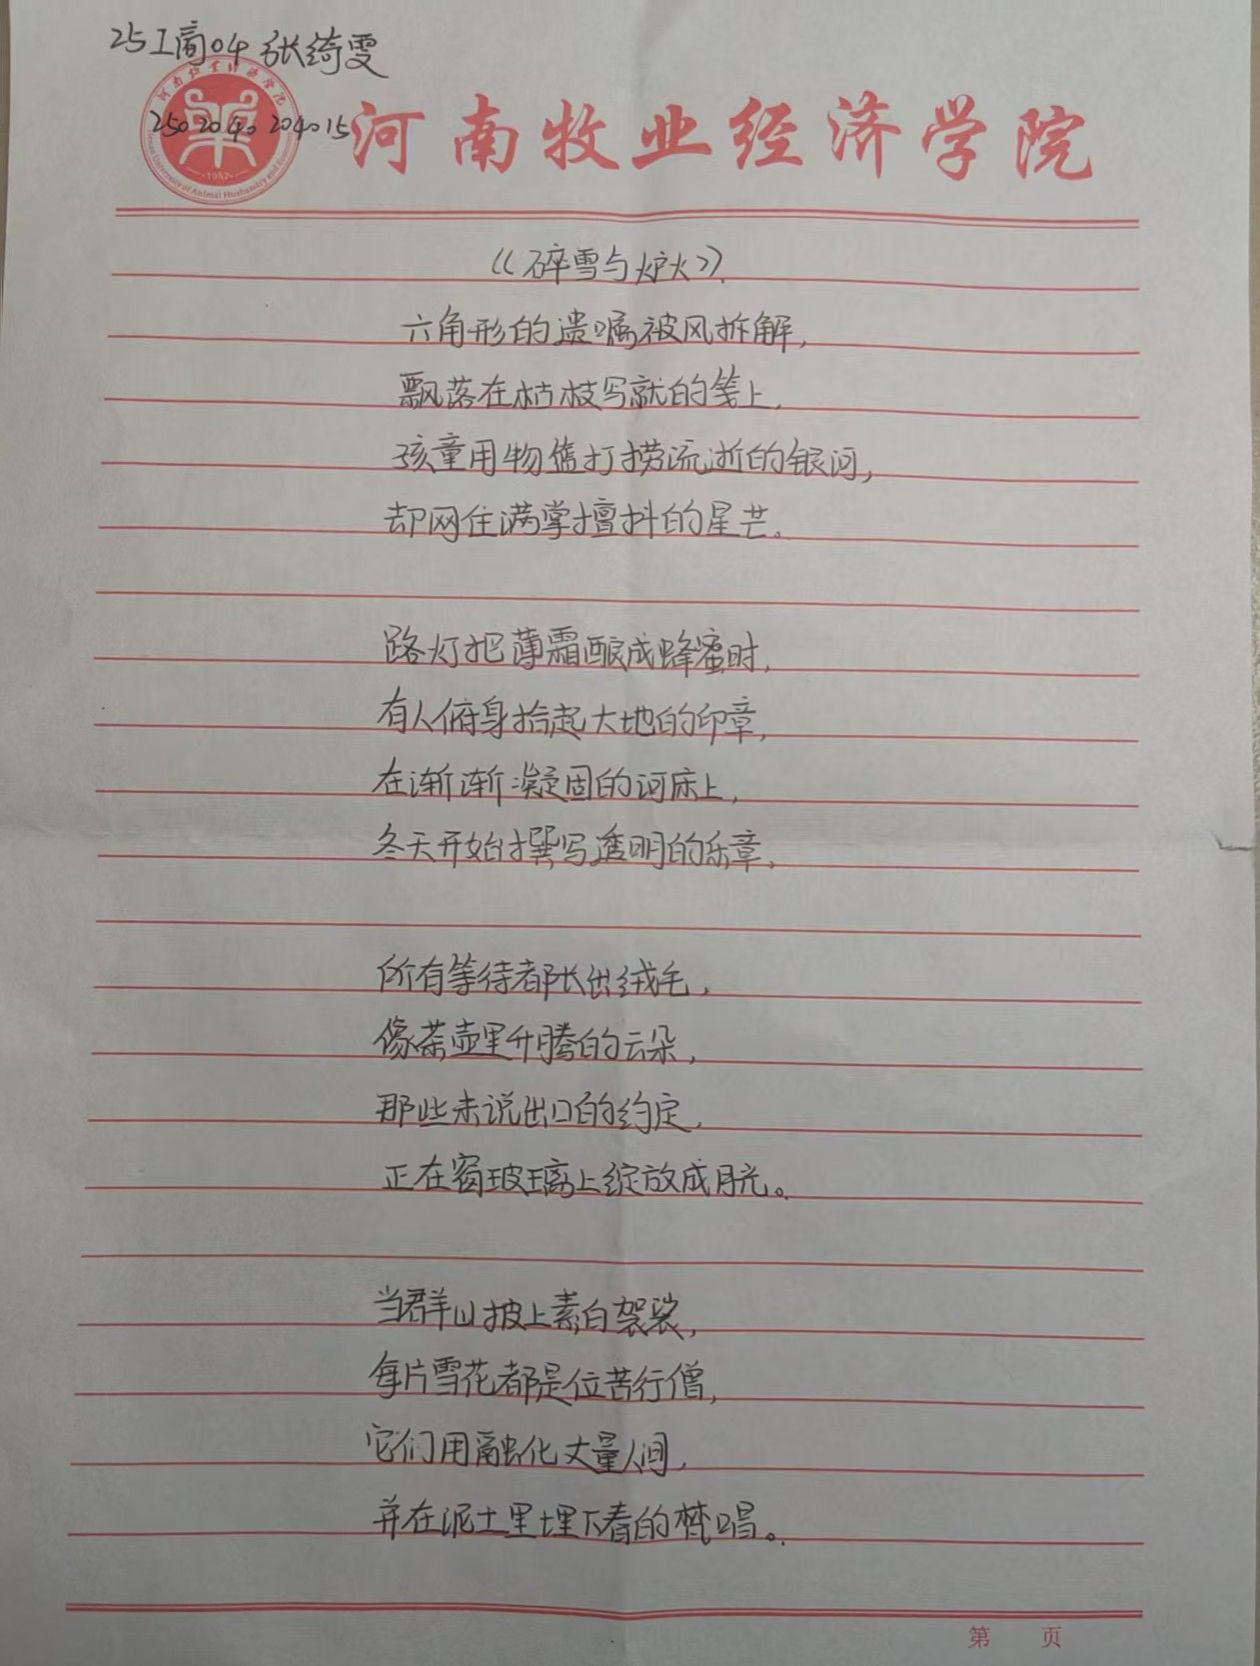 25工商04 张绮雯
2502040204015
河南牧业经济学院
《碎雪与炉火》
六角形的遗嘱被风拆解,
飘落在枯枝写就的笺上,
孩童用物篮打捞流逝的银河,
却网住满掌擅抖的星芒。
路灯把薄霜酿成蜂蜜时,
有人俯身拾起大地的印章,
在渐渐凝固的河床上,
冬天开始撰写透明的乐章。
所有等待都长出绒毛,
像茶壶里升腾的云朵,
那些未说出口的约定,
正在窗玻璃上绽放成月光。
当群山披上素白袈裟,
每片雪花都是位苦行僧,
它们用融化丈量人间,
并在泥土里埋下春的梵唱。
第 页